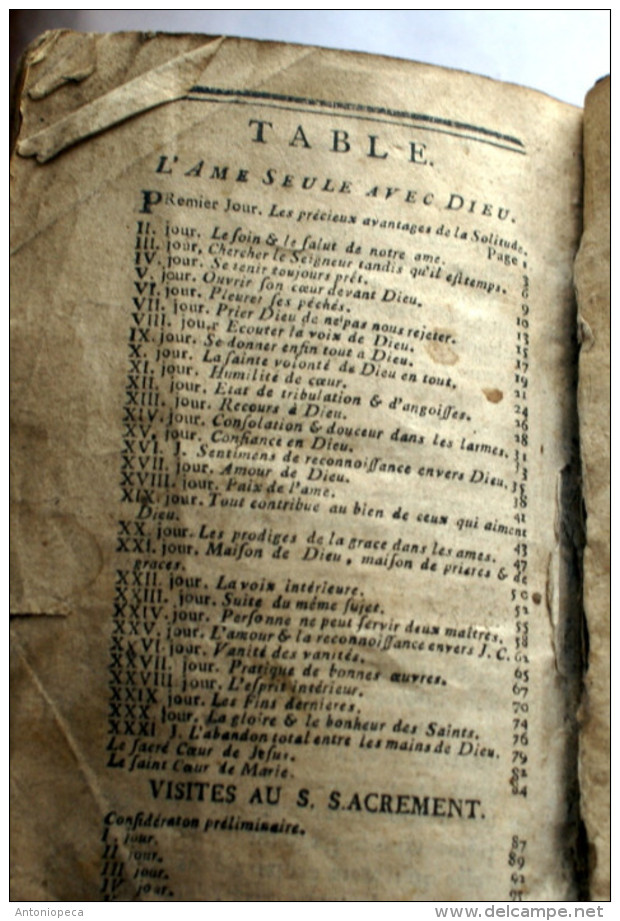 TABLE.
L'AME SEULE AVEC DIEU.
PRemier Jour. Les précieux avantages de la Solitude.
Page 1
II. jour. Le soin & le salut de notre ame. 3
III. jour. Chercher le Seigneur tandis qu'il est temps. 6
IV. jour. Se tenir toujours prêt. 9
V. jour. Ouvrir son cœur devant Dieu. 10
VI. jour. Pleurer ses péchés. 13
VII. jour. Prier Dieu de ne pas nous rejeter. 15
VIII. jour. Ecouter la voix de Dieu. 17
IX. jour. Se donner enfin tout à Dieu. 19
X. jour. La sainte volonté de Dieu en tout. 21
XI. jour. Humilité de cœur. 24
XII. jour. Etat de tribulation & d'angoisses. 26
XIII. jour. Recours à Dieu. 28
XIV. jour. Consolation & douceur dans les larmes. 31
XV. jour. Confiance en Dieu.
XVI. J. Sentimens de reconnoissance envers Dieu. 35
XVII. jour. Amour de Dieu. 38
XVIII. jour. Paix de l'ame. 41
XIX. jour. Tout contribue au bien de ceux qui aiment
Dieu. 43
XX. jour. Les prodiges de la grace dans les ames. 47
XXI. jour. Maison de Dieu, maison de prieres & de
graces. 50
XXII. jour. La voix intérieure. 52
XXIII. jour. Suite du même sujet. 55
XXIV. jour. Personne ne peut servir deux maîtres. 58
XXV. jour. L'amour & la reconnoissance envers J. C. 62
XXVI. jour. Vanité des vanités. 65
XXVII. jour. Pratique de bonnes œuvres. 67
XXVIII. jour. L'esprit intérieur. 70
XXIX. jour. Les Fins dernieres. 74
XXX. jour. La gloire & le bonheur des Saints. 76
XXXI. J. L'abandon total entre les mains de Dieu. 79
Le sacré Cœur de Jesus. 82
Le saint Cœur de Marie. 84
VISITES AU S. S.ACREMENT.
Considératon préliminaire. 87
I. jour. 89
II jour. 92
III jour.
IV jour.
Antoniopeca
www.delcampe.net